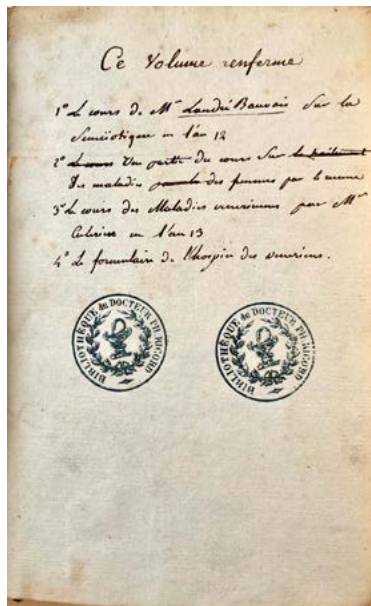 Ce Volume renferme
1° Le cours de Mr Landré Bauvais Sur la
Semeiotique en l'an 12
2° Le cours Une partie du cours Sur le traitement
Des maladies des femmes par le meme
3° Le cours des Maladies veneriennes par Mr
Culerier en l'an 13
4° Le formulaire de l'hospice des veneriens.
BIBLIOTHÈQUE du DOCTEUR PH. RICORD
BIBLIOTHÈQUE du DOCTEUR PH. RICORD